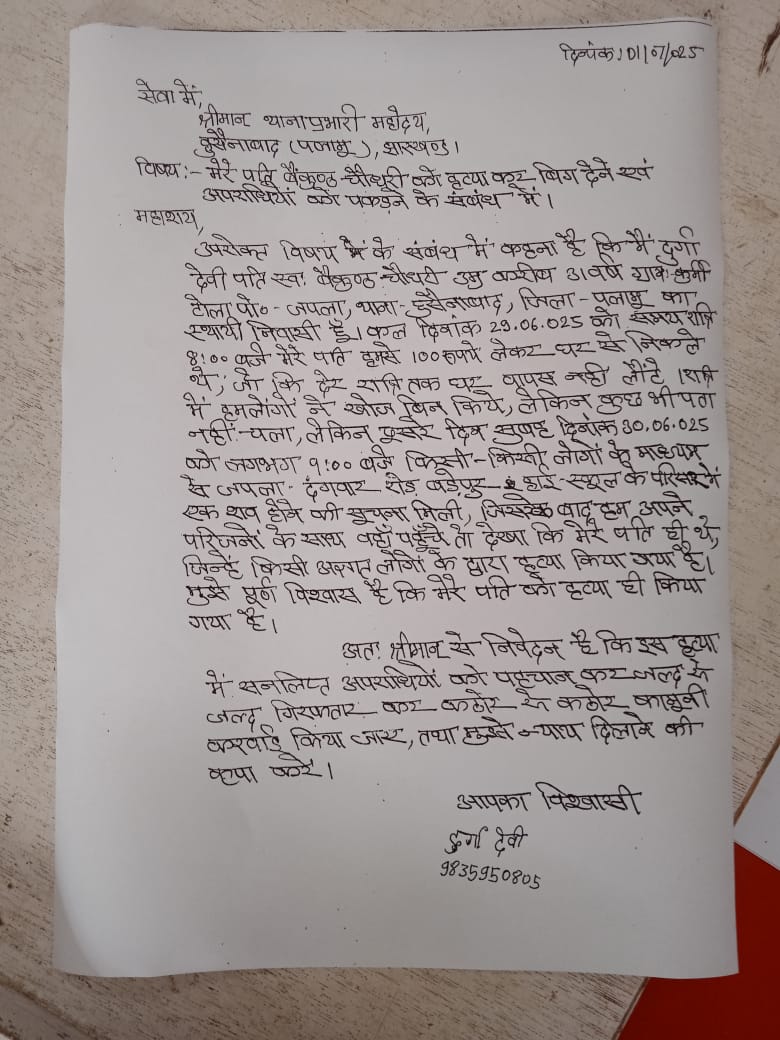 दिनांक: 01/07/025
सेवा में,
श्रीमान थाना प्रभारी महोदय,
हुसैनाबाद (पलामू), झारखण्ड।
विषय:- मेरे पति बैकुण्ठ चौधरी को हत्या कर फेंक देने एवं
अपराधियों को पकड़ने के संबंध में।
महाशय,
उपरोक्त विषय के संबंध में कहना है कि मैं दुर्गा
देवी पति स्व॰ बैकुण्ठ चौधरी उम्र करीब 31 वर्ष ग्राम- कुर्मी
टोला पो०- जपला, थाना- हुसैनाबाद, जिला- पलामू का
स्थायी निवासी हूँ। कल दिनांक 29.06.025 को समय रात्रि
8:00 बजे मेरे पति हमसे 100 रूपये लेकर घर से निकले
थे, जो कि देर रात्रि तक घर वापस नही लौटे। रात्रि
में हमलोगों ने खोज बिन किये, लेकिन कुछ भी पता
नहीं चला, लेकिन दुसरे दिन सुबह दिनांक 30.06.025
को लगभग 9:00 बजे किसी-किसी लोगों के माध्यम
से जपला- दंगवार रोड़ हाई-स्कूल के परिसर में
एक शव होने की सूचना मिली, जिसके बाद हम अपने
परिजनों के साथ वहाँ पहुँचे तो देखा कि मेरे पति ही थे,
जिन्हें किसी अज्ञात लोगों के द्वारा हत्या किया गया है।
मुझे पूर्ण विश्वास है कि मेरे पति को हत्या ही किया
गया है।
अतः श्रीमान से निवेदन है कि इस हत्या
में सनलिप्त अपराधियों को पहचान कर जल्द से
जल्द गिरफतार कर कठोर से कठोर कानुनी
करवाई किया जाए, तथा मुझे न्याय दिलाने की
कृपा करें।
आपका विश्वासी
दुर्गा देवी
9835950805